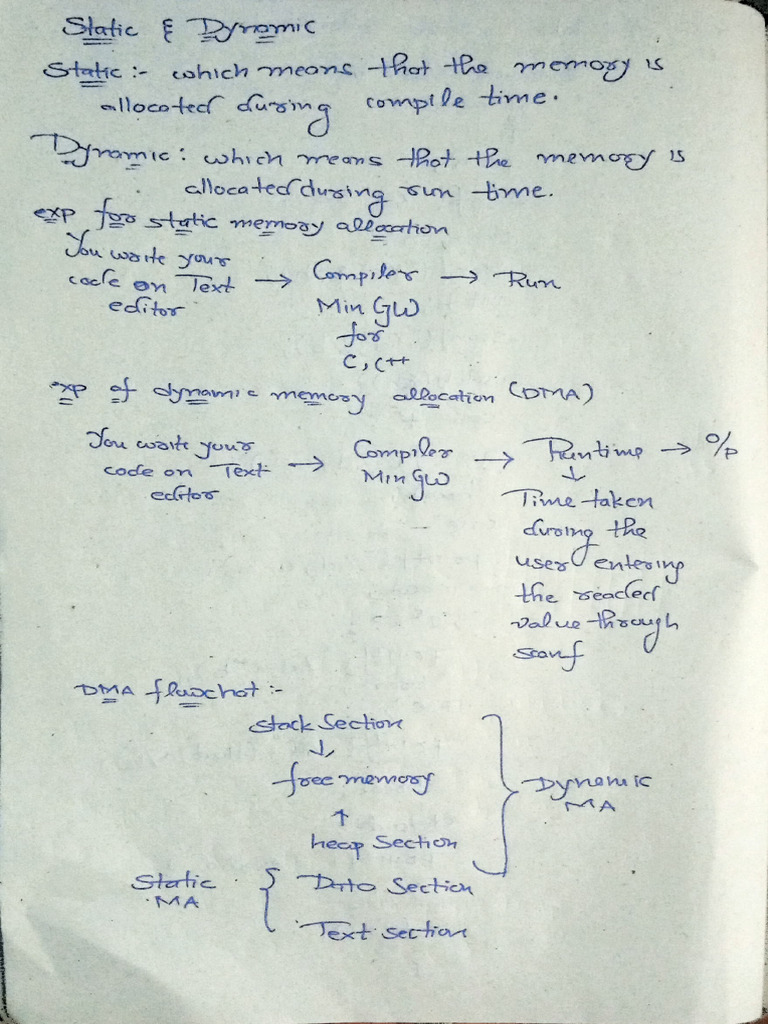 Static & Dynamic
Static :- which means that the memory is
allocated during compile time.
Dynamic : which means that the memory is
allocated during run time.
exp for static memory allocation
You write your
code on Text → Compiler → Run
editor
Min GW
for
C, C++
exp of dynamic memory allocation (DMA)
You write your
code on Text → Compiler → Runtime → O/P
editor
Min GW
↓
Time taken
during the
user entering
the reacted
value through
scanf
DMA flowchat :-
stack Section
↓
free memory
↑
heap Section
Dynamic
MA
Static
MA
Data Section
Text section